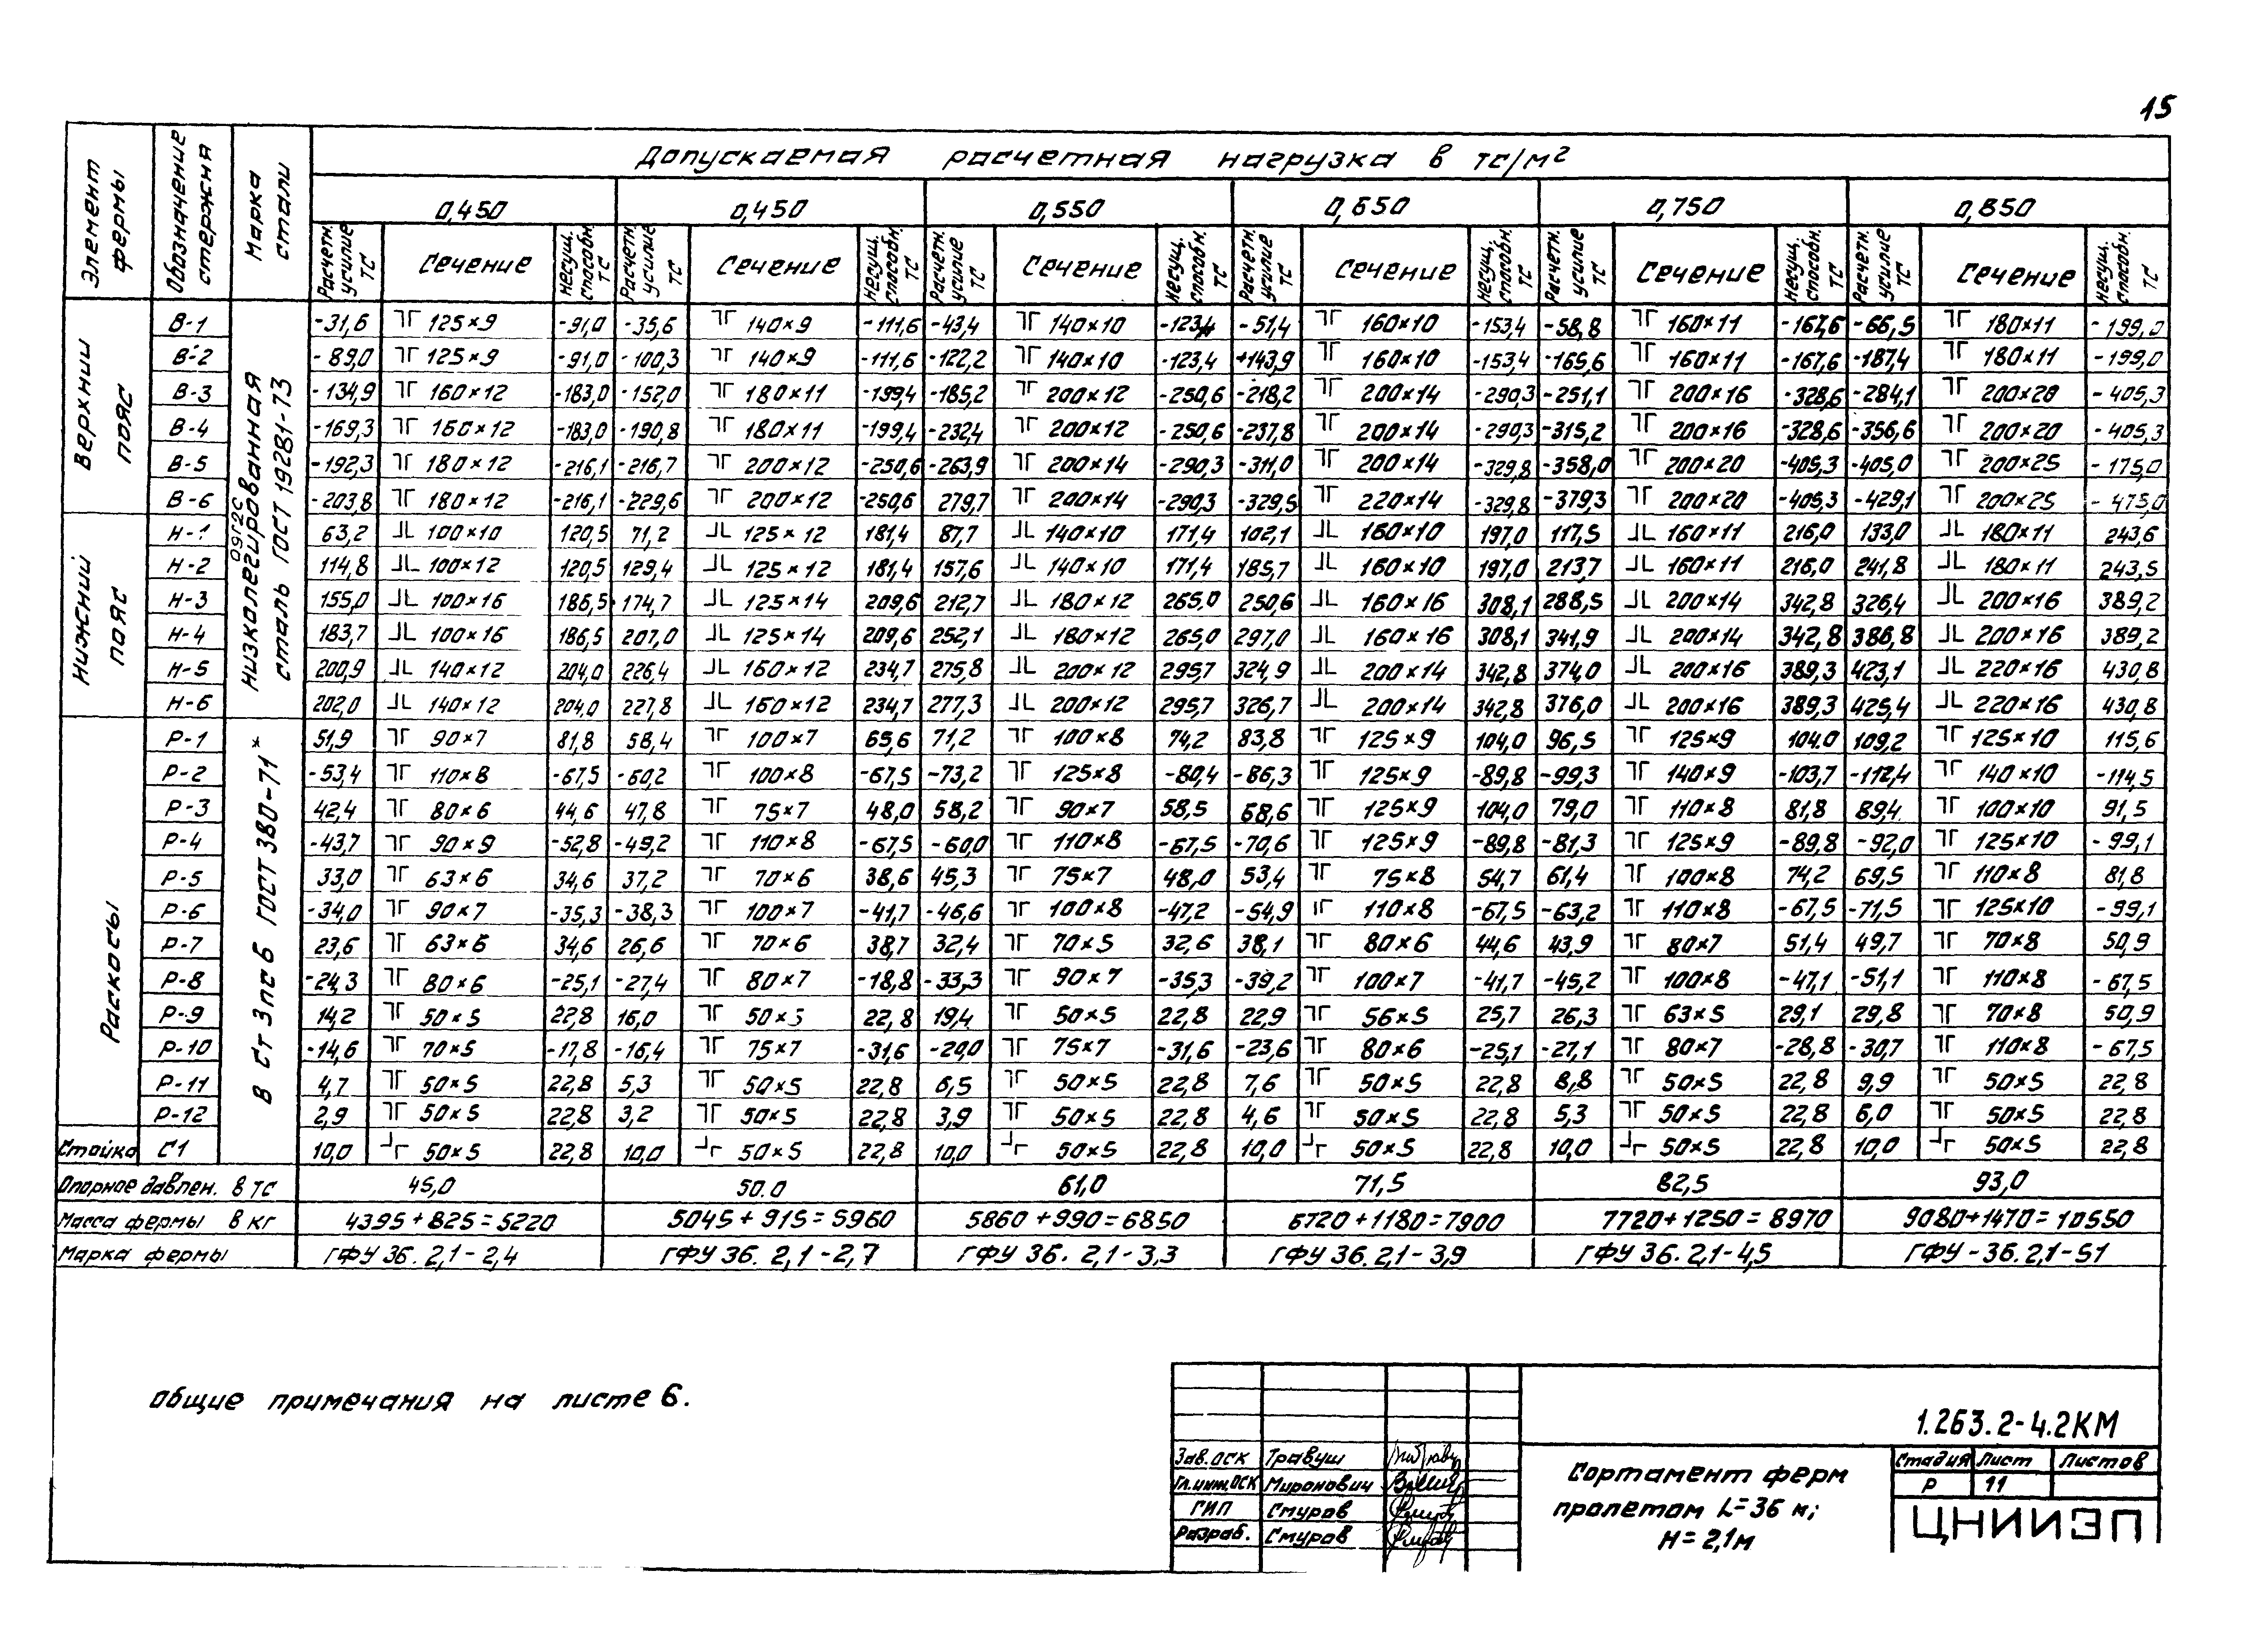 15
Элемент фермы | Обозначение стержня | Марка стали | Допускаемая расчетная нагрузка в тс/м²
0,450 | 0,450 | 0,550 | 0,650 | 0,750 | 0,850
Расчетн. усилие ТС | Сечение | Несущ. способн. ТС | Расчетн. усилие ТС | Сечение | Несущ. способн. ТС | Расчетн. усилие ТС | Сечение | Несущ. способн. ТС | Расчетн. усилие ТС | Сечение | Несущ. способн. ТС | Расчетн. усилие ТС | Сечение | Несущ. способн. ТС | Расчетн. усилие ТС | Сечение | Несущ. способн. ТС
Верхний пояс
Низколегированная сталь ГОСТ 19281-73
09Г2С
В-1 | -31,6 | 125×9 | -91,0 | -35,6 | 140×9 | -111,6 | -43,4 | 140×10 | -123,4 | -51,4 | 160×10 | -153,4 | -58,8 | 160×11 | -167,6 | -66,5 | 180×11 | -199,0
В-2 | -89,0 | 125×9 | -91,0 | -100,3 | 140×9 | -111,6 | -122,2 | 140×10 | -123,4 | +143,9 | 160×10 | -153,4 | -165,6 | 160×11 | -167,6 | -187,4 | 180×11 | -199,0
В-3 | -134,9 | 160×12 | -183,0 | -152,0 | 180×11 | -199,4 | -185,2 | 200×12 | -250,6 | -218,2 | 200×14 | -290,3 | -251,1 | 200×16 | -328,6 | -284,1 | 200×20 | -405,3
В-4 | -169,3 | 160×12 | -183,0 | -190,8 | 180×11 | -199,4 | -232,4 | 200×12 | -250,6 | -237,8 | 200×14 | -290,3 | -315,2 | 200×16 | -328,6 | -356,6 | 200×20 | -405,3
В-5 | -192,3 | 180×12 | -216,1 | -216,7 | 200×12 | -250,6 | -263,9 | 200×14 | -290,3 | -311,0 | 200×14 | -329,8 | -358,0 | 200×20 | -405,3 | -405,0 | 200×25 | -175,0
В-6 | -203,8 | 180×12 | -216,1 | -229,6 | 200×12 | -250,6 | 279,7 | 200×14 | -290,3 | -329,5 | 220×14 | -329,8 | -379,3 | 200×20 | -405,3 | -429,1 | 200×25 | -475,0
Нижский пояс
Н-1 | 63,2 | 100×10 | 120,5 | 71,2 | 125×12 | 181,4 | 87,7 | 140×10 | 171,4 | 102,1 | 160×10 | 197,0 | 117,5 | 160×11 | 216,0 | 133,0 | 180×11 | 243,6
Н-2 | 114,8 | 100×12 | 120,5 | 129,4 | 125×12 | 181,4 | 157,6 | 140×10 | 171,4 | 185,7 | 160×10 | 197,0 | 213,7 | 160×11 | 216,0 | 241,8 | 180×11 | 243,5
Н-3 | 155,0 | 100×16 | 186,5 | 174,7 | 125×14 | 209,6 | 212,7 | 180×12 | 265,0 | 250,6 | 160×16 | 308,1 | 288,5 | 200×14 | 342,8 | 326,4 | 200×16 | 389,2
Н-4 | 183,7 | 100×16 | 186,5 | 207,0 | 125×14 | 209,6 | 252,1 | 180×12 | 265,0 | 297,0 | 160×16 | 308,1 | 341,9 | 200×14 | 342,8 | 386,8 | 200×16 | 389,2
Н-5 | 200,9 | 140×12 | 204,0 | 226,4 | 160×12 | 234,7 | 275,8 | 200×12 | 295,7 | 324,9 | 200×14 | 342,8 | 374,0 | 200×16 | 389,3 | 423,1 | 220×16 | 430,8
Н-6 | 202,0 | 140×12 | 204,0 | 227,8 | 160×12 | 234,7 | 277,3 | 200×12 | 295,7 | 326,7 | 200×14 | 342,8 | 376,0 | 200×16 | 389,3 | 425,4 | 220×16 | 430,8
Раскосы
В Ст 3пс6 ГОСТ 380-71*
Р-1 | 51,9 | 90×7 | 81,8 | 58,4 | 100×7 | 65,6 | 71,2 | 100×8 | 74,2 | 83,8 | 125×9 | 104,0 | 96,5 | 125×9 | 104.0 | 109,2 | 125×10 | 115,6
Р-2 | -53,4 | 110×8 | -67,5 | -60,2 | 100×8 | -67,5 | -73,2 | 125×8 | -80,4 | -86,3 | 125×9 | -89,8 | -99,3 | 140×9 | -103,7 | -112,4 | 140×10 | -114,5
Р-3 | 42,4 | 80×6 | 44,6 | 47,8 | 75×7 | 48,0 | 58,2 | 90×7 | 58,5 | 68,6 | 125×9 | 104,0 | 79,0 | 110×8 | 81,8 | 89,4 | 100×10 | 91,5
Р-4 | -43,7 | 90×9 | -52,8 | -49,2 | 110×8 | -67,5 | -60,0 | 110×8 | -67,5 | -70,6 | 125×9 | -89,8 | -81,3 | 125×9 | -89,8 | -92,0 | 125×10 | -99,1
Р-5 | 33,0 | 63×6 | 34,6 | 37,2 | 70×6 | 38,6 | 45,3 | 75×7 | 48,0 | 53,4 | 75×8 | 54,7 | 61,4 | 100×8 | 74,2 | 69,5 | 110×8 | 81,8
Р-6 | -34,0 | 90×7 | -35,3 | -38,3 | 100×7 | -41,7 | -46,6 | 100×8 | -47,2 | -54,9 | 110×8 | -67,5 | -63,2 | 110×8 | -67,5 | -71,5 | 125×10 | -99,1
Р-7 | 23,6 | 63×6 | 34,6 | 26,6 | 70×6 | 38,7 | 32,4 | 70×5 | 32,6 | 38,1 | 80×6 | 44,6 | 43,9 | 80×7 | 51,4 | 49,7 | 70×8 | 50,9
Р-8 | -24,3 | 80×6 | -25,1 | -27,4 | 80×7 | -18,8 | -33,3 | 90×7 | -35,3 | -39,2 | 100×7 | -41,7 | -45,2 | 100×8 | -47,1 | -51,1 | 110×8 | -67,5
Р-9 | 14,2 | 50×5 | 22,8 | 16,0 | 50×5 | 22,8 | 19,4 | 50×5 | 22,8 | 22,9 | 56×5 | 25,7 | 26,3 | 63×5 | 29,1 | 29,8 | 70×8 | 50,9
Р-10 | -14,6 | 70×5 | -17,8 | -16,4 | 75×7 | -31,6 | -20,0 | 75×7 | -31,6 | -23,6 | 80×6 | -25,1 | -27,1 | 80×7 | -28,8 | -30,7 | 110×8 | -67,5
Р-11 | 4,7 | 50×5 | 22,8 | 5,3 | 50×5 | 22,8 | 6,5 | 50×5 | 22,8 | 7,6 | 50×5 | 22,8 | 8,8 | 50×5 | 22,8 | 9,9 | 50×5 | 22,8
Р-12 | 2,9 | 50×5 | 22,8 | 3,2 | 50×5 | 22,8 | 3,9 | 50×5 | 22,8 | 4,6 | 50×5 | 22,8 | 5,3 | 50×5 | 22,8 | 6,0 | 50×5 | 22,8
Стойка | С1 | 10,0 | 50×5 | 22,8 | 10,0 | 50×5 | 22,8 | 10,0 | 50×5 | 22,8 | 10,0 | 50×5 | 22,8 | 10,0 | 50×5 | 22,8 | 10,0 | 50×5 | 22,8
Опорное давлен. в тс | 45,0 | 50.0 | 61,0 | 71,5 | 82,5 | 93,0
Масса фермы в кг | 4395+825=5220 | 5045+915=5960 | 5860+990=6850 | 6720+1180=7900 | 7720+1250=8970 | 9080+1470=10550
Марка фермы | ГФУ 36. 2,1-2,4 | ГФУ 36. 2,1-2,7 | ГФУ 36. 2,1-3,3 | ГФУ 36.2,1-3,9 | ГФУ 36. 2,1-4,5 | ГФУ-36.2,1-51
Общие примечания на листе 6.
1.263.2-4.2КМ
Зав.ОСК Травуш
Гл.инж.ОСК Миронович
ГИП Смуров
Разраб. Смуров
Сортамент ферм
пролетом L=36 м;
Н=2,1м
Стадия Лист Листов
Р 11
ЦНИИЭП